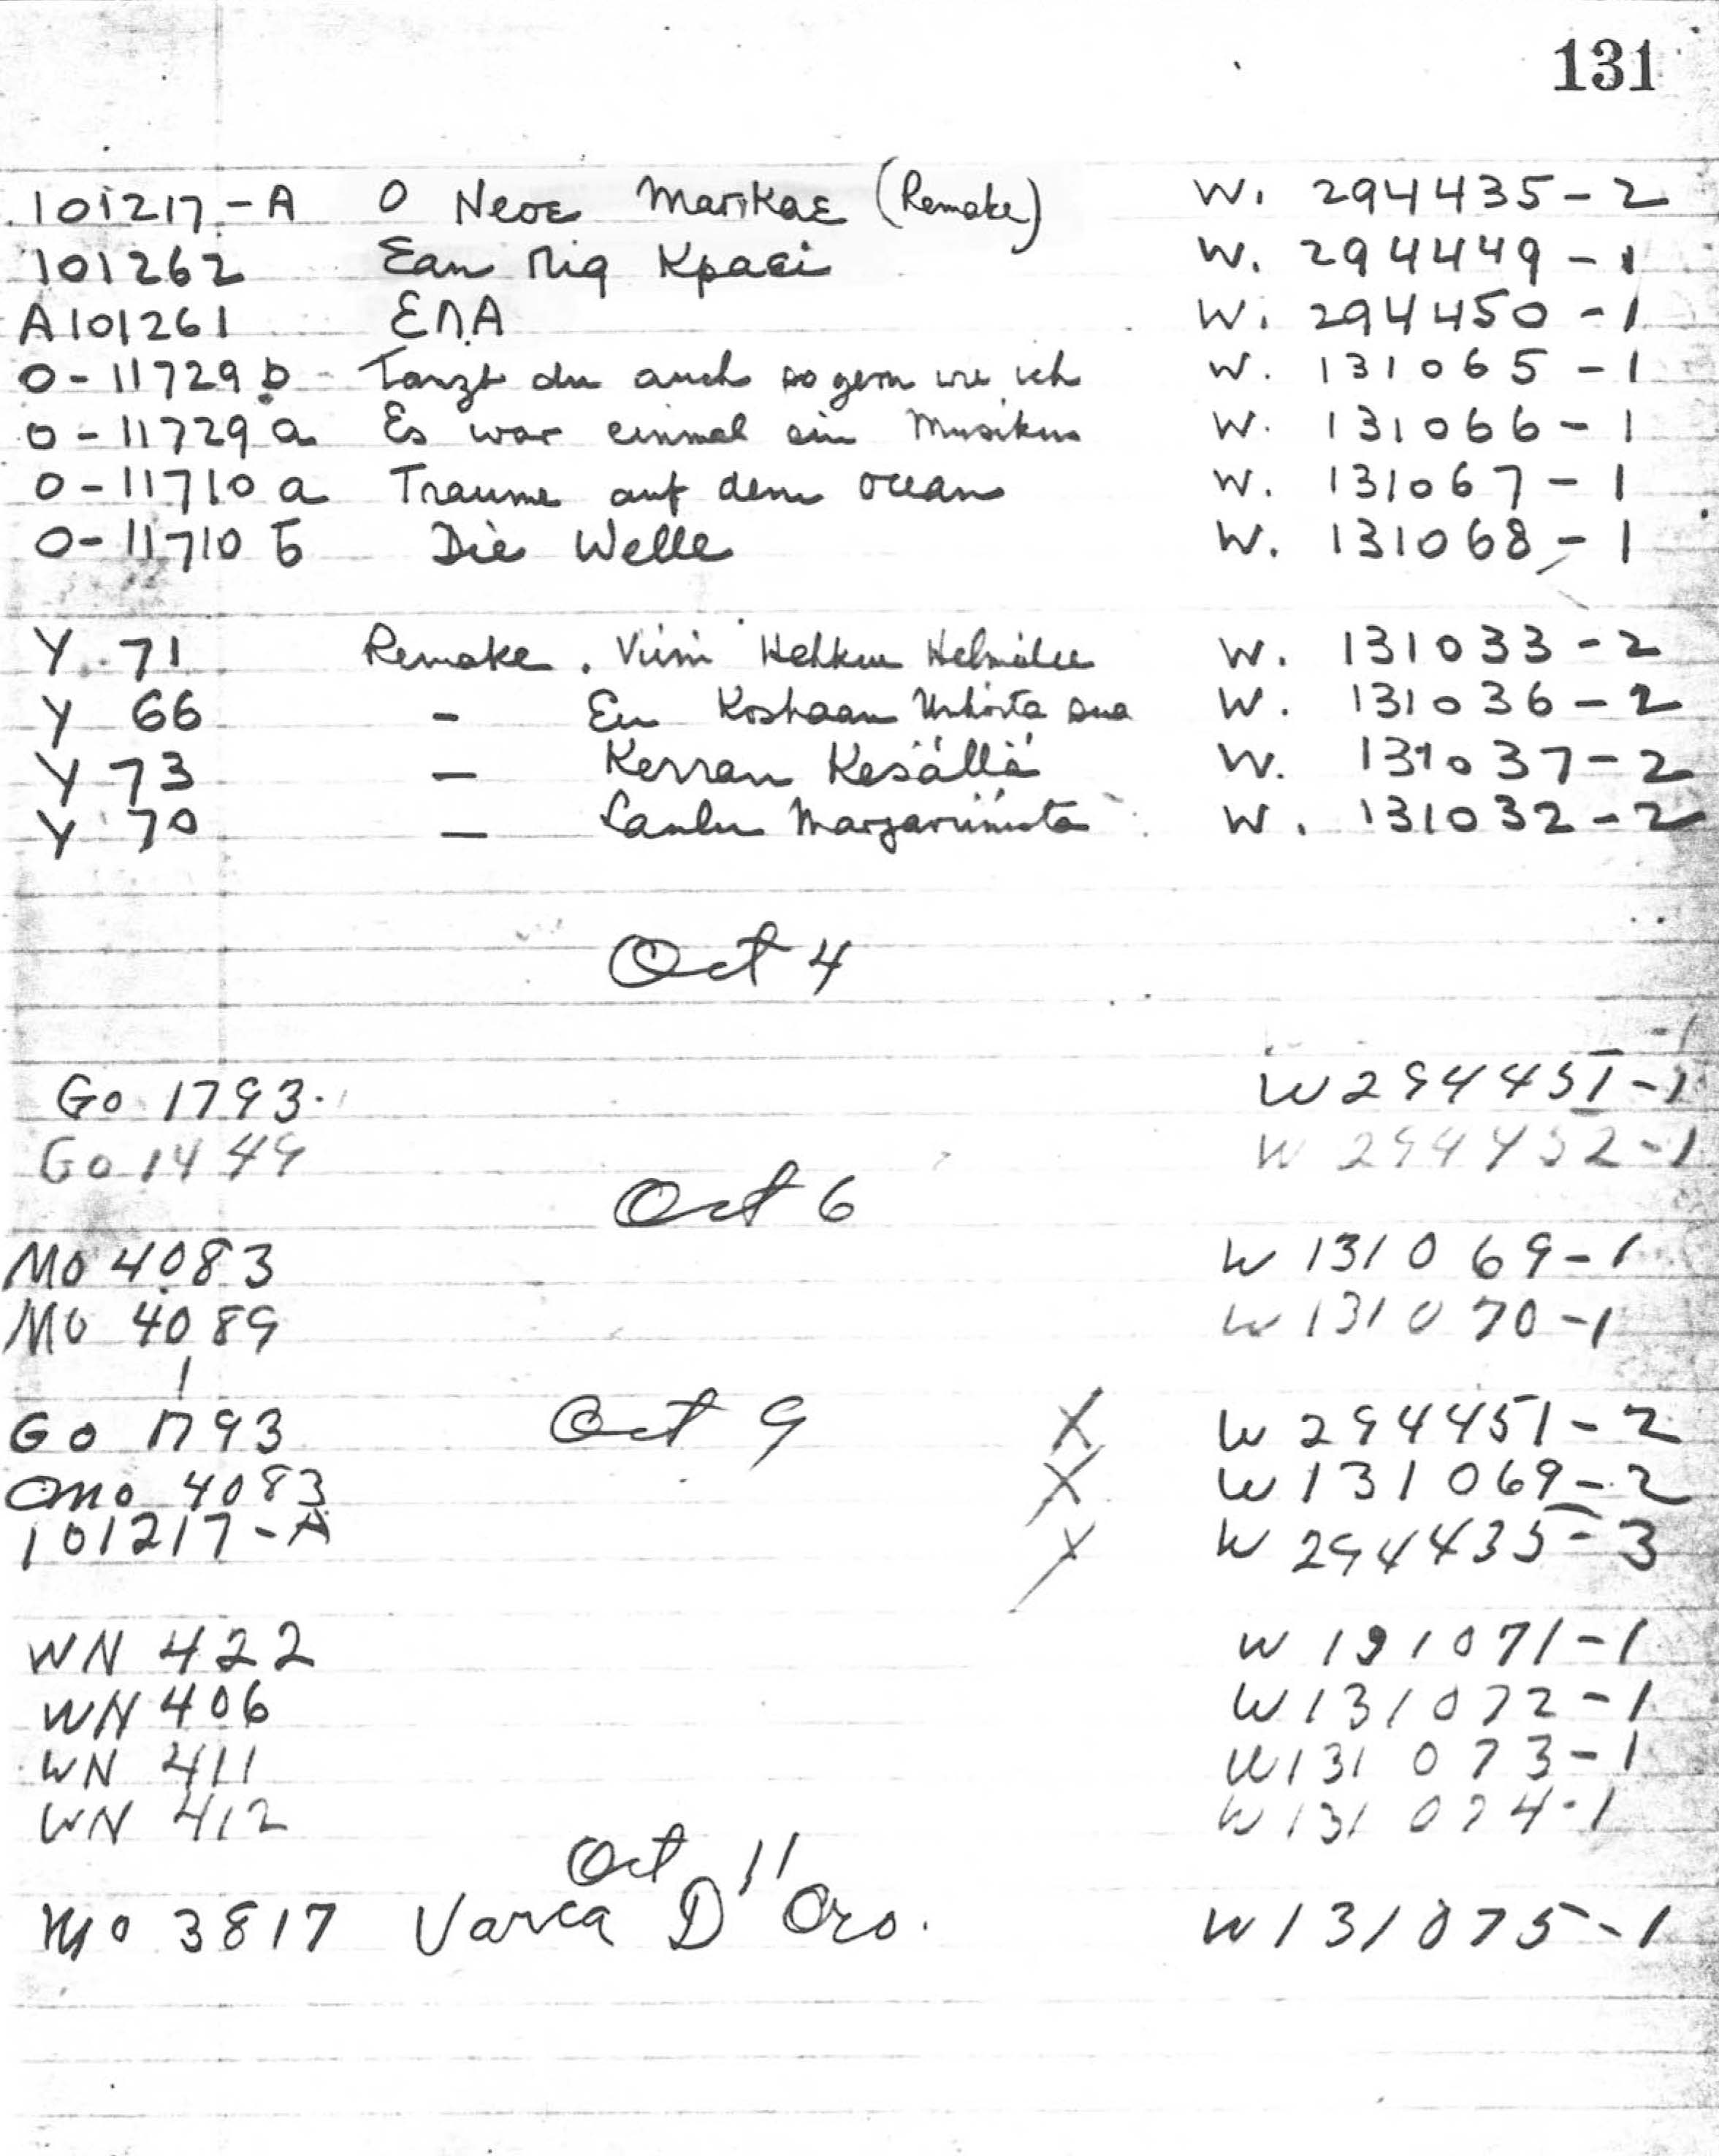 131
101217-A O Neoε Marikaε (Remake) W. 294435-2
101262 Εαn Πιq Κραεi W. 294449-1
A101261 ΕΛΑ W. 294450-1
O-11729 b Tanzt du auch so gern wie ich W. 131065-1
O-11729 a Es war einmal ein Musikus W. 131066-1
O-11710 a Traume auf dem ocean W. 131067-1
O-11710 b Die Welle W. 131068-1
Y 71 Remake. Viini Hehkuu W. 131033-2
Y 66 - En Koskaan sua W. 131036-2
Y 73 - Kerran Kesällä W. 131037-2
Y 70 - Laulu W. 131032-2
Oct 4
-1
Go 1793. W 294451-1
Go 1449 W 294452-1
Oct 6
Mo 4083 W 131069-1
Mo 4089 W 131070-1
Go 1793 Oct 9 X W 294451-2
Mo 4083 X W 131069-2
101217-A X W 294435-3
WN 422 W 131071-1
WN 406 W 131072-1
WN 411 W 131073-1
WN 412 W 131074-1
Oct 11
Mo 3817 Varca D'Oro. W 131075-1